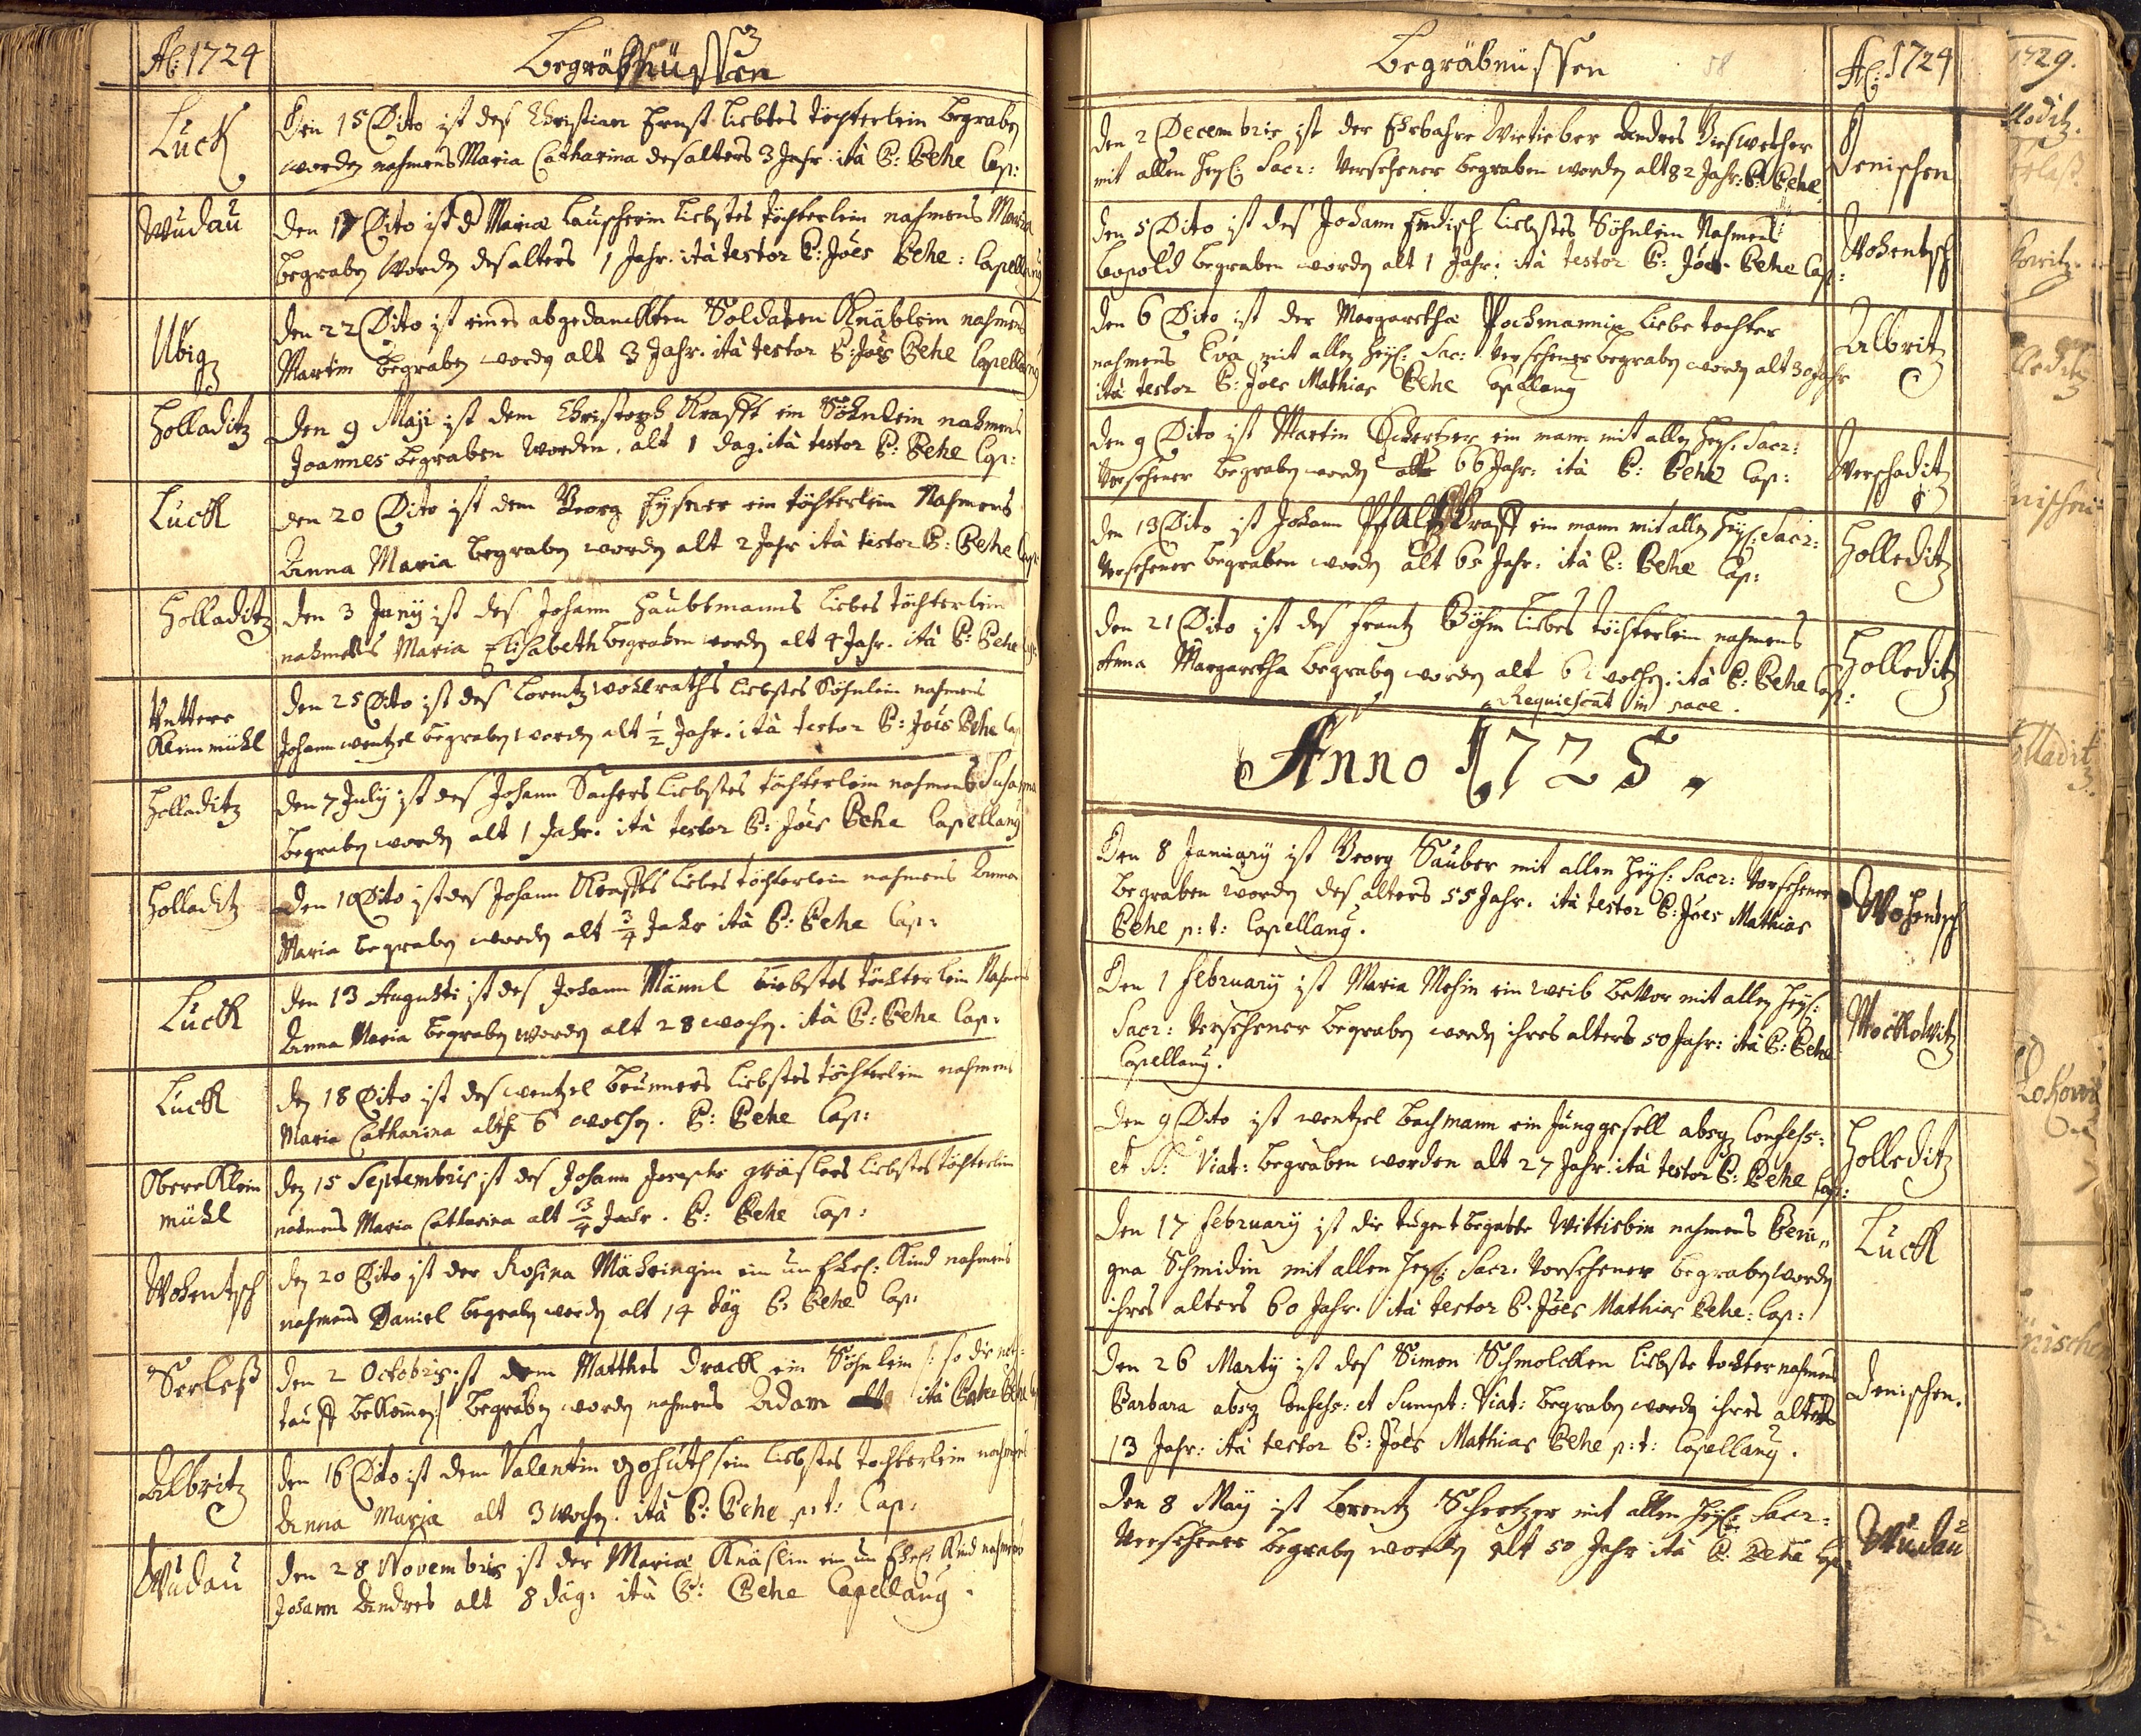 Aõ: 1724
Begräbnüssen
Luck
Den 15 Dito ist des Christian Ernst liebtes töchterlein begraben
worden nahmens Maria Catharina des alters 3 Jahr. ità P: Behe Cap:
Wudau
Den 17 Dito ist d Mariæ Lauscherin liebstes töchterlein nahmens Maria
begraben worden des alters 1 Jahr. ità testor P: Joes Behe: Capellang
Ubig
Den 22 Dito ist eines abgedanckten Soldaten Knäblein nahmens
Martin begraben worden alt 3 Jahr. ità testor P: Joes Behe Capellang
Holladitz
Den 9 Maji ist dem Christoph Krafft ein Söhnlein nahmens
Joannes begraben worden. alt 1 dag. ità testor P: Behe Cap:
Luck
Den 20 Dito ist dem Georg ein töchterlein Nahmens
Anna Maria begraben worden alt 2 Jahr ità testor P: Behe Cap:
Holladitz
Den 3 Juny ist des Johann Haubtmanns liebes töchterlein
nahmens Maria Elisabeth begraben worden alt 4 Jahr. ità P: Behe
Klein mühl
Den 25 Dito ist des Lorentz wohlraths liebstes Söhnlein nahmens
Johann wentzel begraben worden alt 1/2 Jahr. ità testor P: Joes Behe Cap
Holladitz
Den 7 July ist des Johann Sachers liebstes töchterlein nahmens Susanna
begraben worden alt 1 Jahr. ità testor P: Joes Behe Capellang
Holladitz
Den 10 Dito ist des Johann Kraffts liebes töchterlein nahmens Anna
Maria begraben worden alt 3/4 Jahr ità P: Behe Cap:
Luck
Den 13 Augusti ist des Johann Männl liebstes töchterlein Nahmens
Anna Maria begraben worden alt 28 wochen. ità P: Behe Cap:
Luck
Den 18 Dito ist des wentzel Brunners liebstes töchterlein nahmens
Maria Catharina alt 6 wochen. P: Behe Cap:
Obere Klein
mühl
Den 15 Septembris ist des Johann gräslers liebstes töchterlein
nahmens Maria Catharina alt 3/4 Jahr. P: Behe Cap:
Wohentsch
Den 20 Dito ist der Rosina Mähringin ein un Ehel: Kind nahmens
nahmens Daniel begraben worden alt 14 täg P: Behe Cap:
Serless
Den 2 Octobris ist dem Matthes Drackl ein Söhnlein /: so die noth=
tauff bekommen:/ begraben worden nahmens Adam ità Pater Behe
Albritz
Den 16 Dito ist dem Valentin sein liebstes tochterlein nahmens
Anna Maria alt 3 wochen. ità P: Behe p: t: Cap:
Wudau
Den 28 Novembris ist der Mariæ Knäslin ein un Ehel: Kind nahmens
Johann Andres alt 8 däg: ità P: Behe Capellang.
Begräbnüssen
58
Aõ: 1724
Den 2 Decembris ist der Ehrbahre Wittieber Andres
mit allen Heyl: Sacr: Versehener begraben worden alt 82 Jahr: P: Behe
Denischen
Den 5 Dito ist des Johann Endisch liebstes Söhnlein Nahmens
Leopold begraben worden alt 1 Jahr. ità testor P: Joes Behe Cap:
Wohentsch
Den 6 Dito ist der Margaretha Pochmannin liebe tochter
nahmens Eva mit allen Heyl: Sac: Versehener begraben worden alt 30 Jahr
ità testor P: Joes Mathias Behe Capellang
Albritz
Den 9 Dito ist Martin Schertzer ein mann mit allen Heyl: Sacr:
Versehener begraben worden alt 66 Jahr: ità P: Behe Cap:
Werschaditz
Den 13 Dito ist Johann Krafft ein mann mit allen Heyl: Sacr:
Versehener begraben worden alt 65 Jahr: ità P: Behe Cap:
Holleditz
Den 21 Dito ist des Frantz Böhm liebes töchterlein nahmens
Anna Margaretha begraben worden alt 6 wochen. ità P: Behe Cap:
Requiescāt in pace.
Holleditz
Anno 1725.
Den 8 January ist Georg Sauber mit allen Heyl: Sacr: Versehener
begraben worden des alters 55 Jahr. ità testor P: Joes Mathias
Behe p: t: Capellang.
Wohentsch
Den 1 February ist Maria Mosin ein weib bevor mit allen Heyl:
Sacr: Versehener begraben worden ihres alters 50 Jahr: ità P: Behe
Capellang.
Mockowitz
Den 9 Dito ist wentzel Bachmann ein Junggesell absq Confess:
et S: Viat: begraben worden alt 27 Jahr. ità testor P: Behe Cap:
Holleditz
Den 17 February ist die tugentbegabte Wittiebin nahmens Beni„
gna Schmidin mit allen Heyl: Sacr: Versehener begraben worden
ihres alters 60 Jahr. ità testor P: Joes Mathias Behe: Cap:
Luck
Den 26 Marty ist des Simon Schmolcken liebste tochter nahmens
Barbara absq Confess: et Sumpt: Viat: begraben worden ihres alters
13 Jahr: ità testor P: Joes Mathias Behe p: t: Capellang.
Denischen.
Den 8 May ist Lorentz Schertzer mit allen Heyl: Sacr:
Versehener begraben worden alt 50 Jahr ità P: Behe Cap:
Wudau